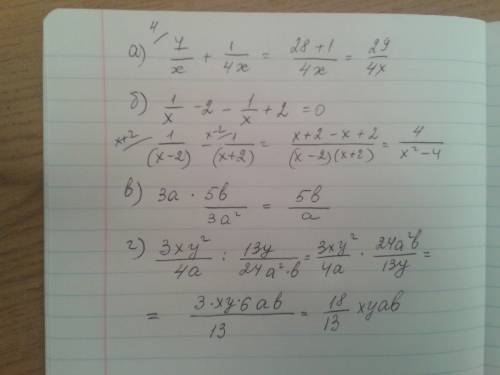 а) ⁴⁄ 7/x + 1/4x = 28+1/4x = 29/4x
б) 1/x - 2 - 1/x + 2 = 0
x+2⁄ 1/(x-2) - x-2⁄ 1/(x+2) = x+2-x+2/(x-2)(x+2) = 4/x²-4
в) 3a · 5b/3a² = 5b/a
г) 3xy²/4a : 13y/24a²·b = 3xy²/4a · 24a²b/13y =
= 3·xy·6ab/13 = 18/13 xyab